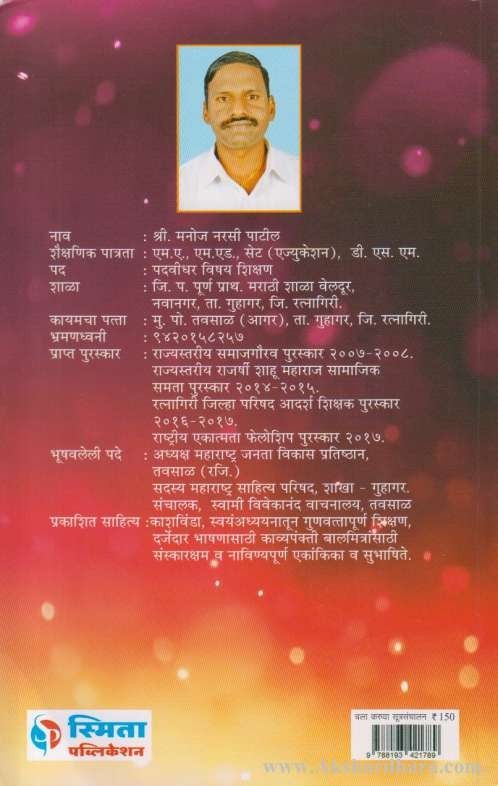 नाव : श्री. मनोज नरसी पाटील
शैक्षणिक पात्रता : एम.ए., एम.एड., सेट (एज्युकेशन), डी. एस. एम.
पद : पदवीधर विषय शिक्षण
शाळा : जि. प. पूर्ण प्राथ. मराठी शाळा वेलदूर,
नवानगर, ता. गुहागर, जि. रत्नागिरी.
कायमचा पत्ता : मु. पो. तवसाळ (आगर), ता. गुहागर, जि. रत्नागिरी.
भ्रमणध्वनी : ९४२०१५८२५७
प्राप्त पुरस्कार : राज्यस्तरीय समाजगौरव पुरस्कार २००७-२००८.
राज्यस्तरीय राजर्षी शाहू महाराज सामाजिक
समता पुरस्कार २०१४-२०१५.
रत्नागिरी जिल्हा परिषद आदर्श शिक्षक पुरस्कार
२०१६-२०१७.
राष्ट्रीय एकात्मता फेलोशिप पुरस्कार २०१७.
भूषवलेली पदे : अध्यक्ष महाराष्ट्र जनता विकास प्रतिष्ठान,
तवसाळ (रजि.)
सदस्य महाराष्ट्र साहित्य परिषद, शाखा - गुहागर.
संचालक, स्वामी विवेकानंद वाचनालय, तवसाळ
प्रकाशित साहित्य : काशविंडा, स्वयंअध्ययनातून गुणवत्तापूर्ण शिक्षण,
दर्जेदार भाषणासाठी काव्यपंक्ती बालमित्रांसाठी
संस्कारक्षम व नाविण्यपूर्ण एकांकिका व सुभाषिते.
स्मिता
पब्लिकेशन
चला करुया सूत्रसंचालन ₹ 150
9 788193 421789
www.Aksharddhara.com